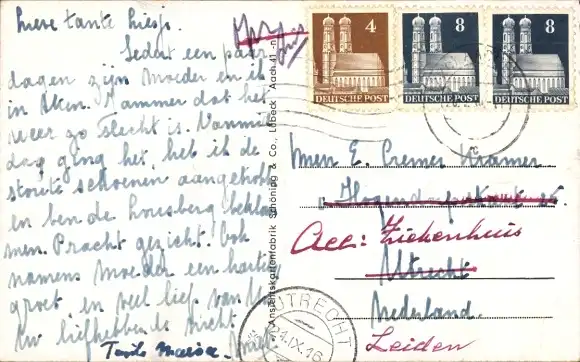 Lieve tante Liesje.
Sedert een paar
dagen zijn Moeder en ik
in Aken. Jammer dat het
weer zo slecht is. Vanmid
dag ging het, heb ik de
stoute schoenen aangetrokken
en ben de Lousberg beklom
men. Pracht gezicht! Ook
namens Moeder een hartelijke
groet en veel liefs van Uw
liefhebbende nicht
4
DEUTSCHE POST
8
DEUTSCHE POST
8
DEUTSCHE POST
Ansichtskartenfabrik Schöning & Co., Lübeck
Aach 41
Mevr. E. Cremer Kramer
Acc: Ziekenhuis
Utrecht
Nederland.
Leiden
UTRECHT